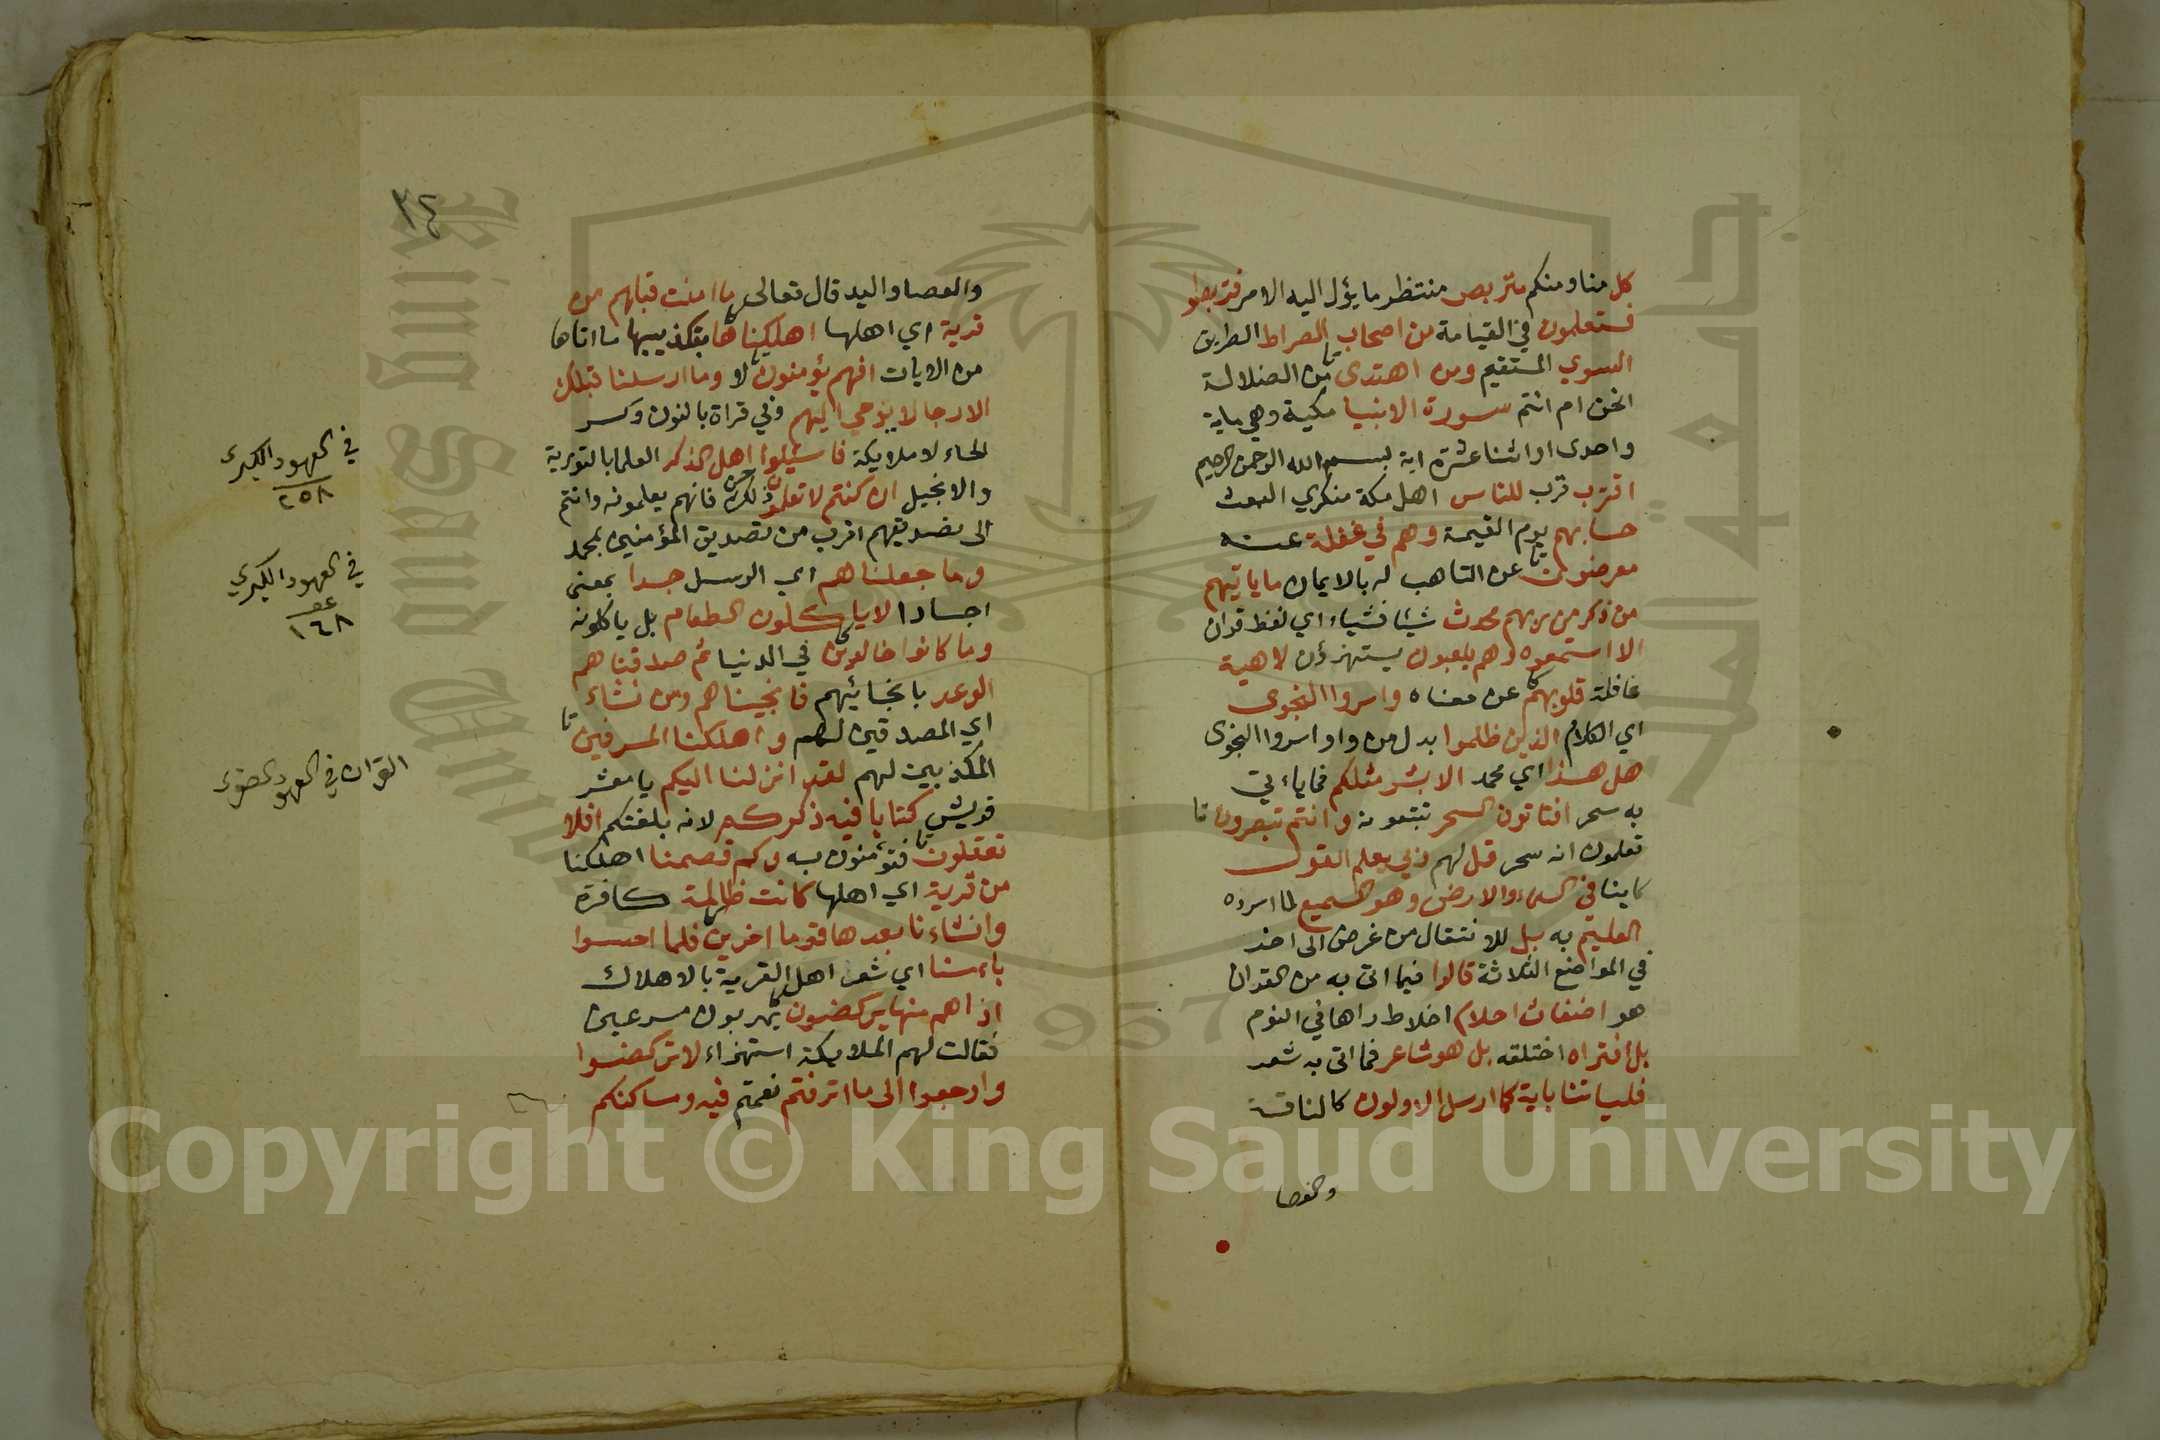 كل منا ومنكم متربص منتظر ما يؤل اليه الامر فتربصوا
فستعلمون في القيامة من اصحاب الصراط الطريق
السوي المستقيم ومن اهتدى من الضلالة
انحن ام انتم سورة الانبيا مكية وهي ماية
واحدى او اثنتا عشرة اية بسم الله الرحمن الرحيم
اقترب قرب للناس اهل مكة منكري البعث
حسابهم يوم القيمة وهم في غفلة عنه
معرضون عن التاهب له بالايمان ما ياتيهم
من ذكر من ربهم محدث شيئا فشياء اي لفظ قران
الا استمعوه وهم يلعبون يستهزؤن لاهية
غافلة قلوبهم عن معناه واسروا النجوى
اي الكلام الذين ظلموا بدل من واو اسروا النجوى
هل هذا اي محمد الا بشر مثلكم فما ياءتي
به سحر افتاتون السحر تتبعونه وانتم تبصرون
تعلمون انه سحر قل لهم ربي يعلم القول
كاينا في السماء والارض وهو السميع لما اسروه
العليم به بل للانتقال من غرض الى اخر
في المواضع الثلاثة قالوا فيما اتى به من القران
هو اضغاث احلام اخلاط راها في النوم
بل افتراه اختلقه بل هو شاعر فما اتى به شعر
فلياتنا باية كما ارسل الاولون كالناقة
والعصا
٣٤
والعصا واليد قال تعالى ما امنت قبلهم من
قرية اي اهلها اهلكناها بتكذيبها ما اتاها
من الايات افهم يؤمنون لا وما ارسلنا قبلك
الا رجالا يوحي اليهم وفي قراة بالنون وكسر
الحاء لا ملايكة فاسئلوا اهل الذكر العلما بالتورية
والانجيل ان كنتم لا تعلمون ذلك فانهم يعلمونه وانتم
الى تصديقهم اقرب من تصديق المؤمنين بمحمد
وما جعلناهم اي الرسل جسدا بمعنى
اجسادا لا ياكلون الطعام بل ياكلونه
وما كانوا خالدين في الدنيا ثم صدقناهم
الوعد بانجائيهم فانجيناهم ومن نشاء
اي المصدقين لهم واهلكنا المسرفين
المكذبين لهم لقد انزلنا اليكم يا معشر
قريش كتابا فيه ذكركم لانه بلغتكم افلا
تعقلون فتؤمنون به وكم قصمنا اهلكنا
من قرية اي اهلها كانت ظالمة كافرة
وانشاءنا بعدها قوما اخرين فلما احسوا
باءسنا اي شعر اهل القرية بالاهلاك
اذا هم منها يركضون يهربون مسرعين
فقالت لهم الملايكة استهزاء لا تركضوا
وارجعوا الى ما اترفتم نعمتم فيه ومساكنكم
في العهود الكبرى
٢٥٨
في العهود الكبرى
١٦٨
القران في العهود
Copyright © King Saud University
King Saud University
جامعة الملك سعود
1957